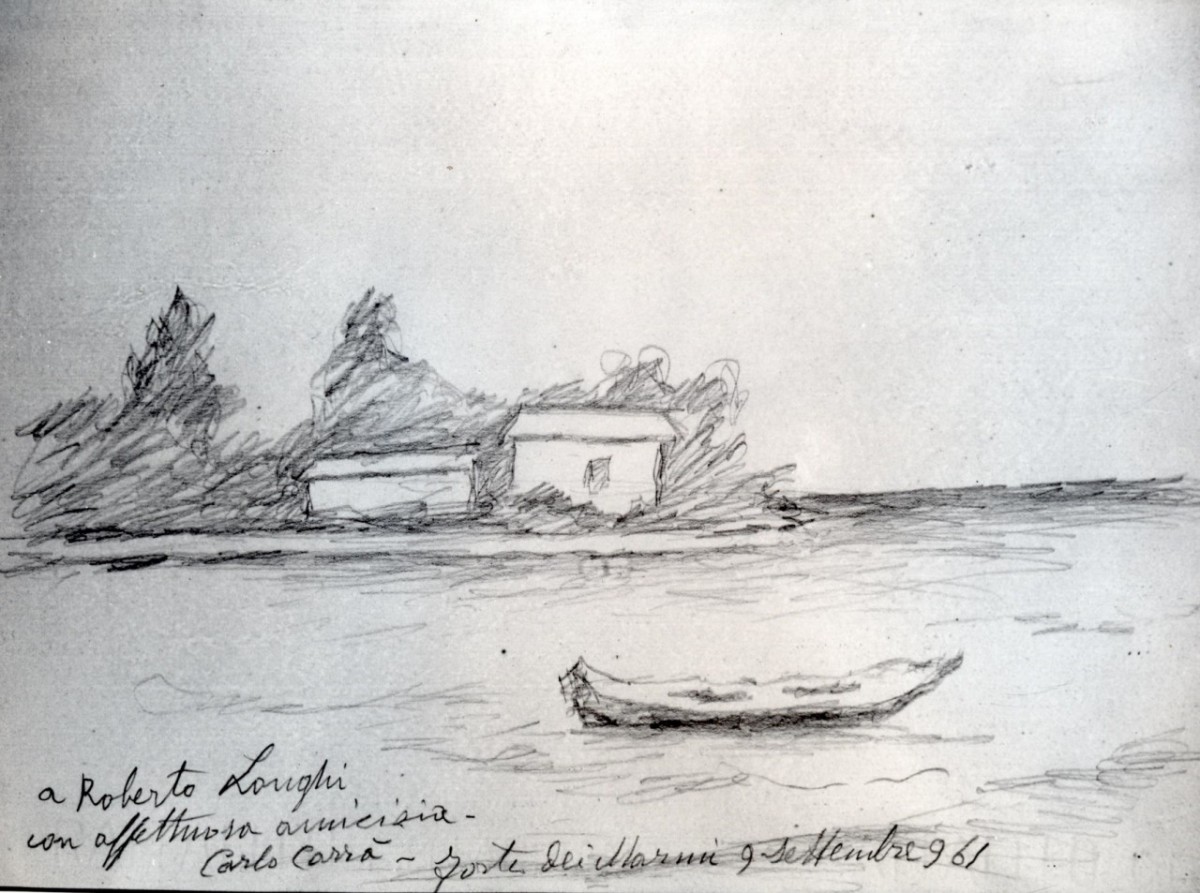 a Roberto Longhi
con affettuosa amicizia -
Carlo Carrà - Forte dei Marmi 9 settembre 961